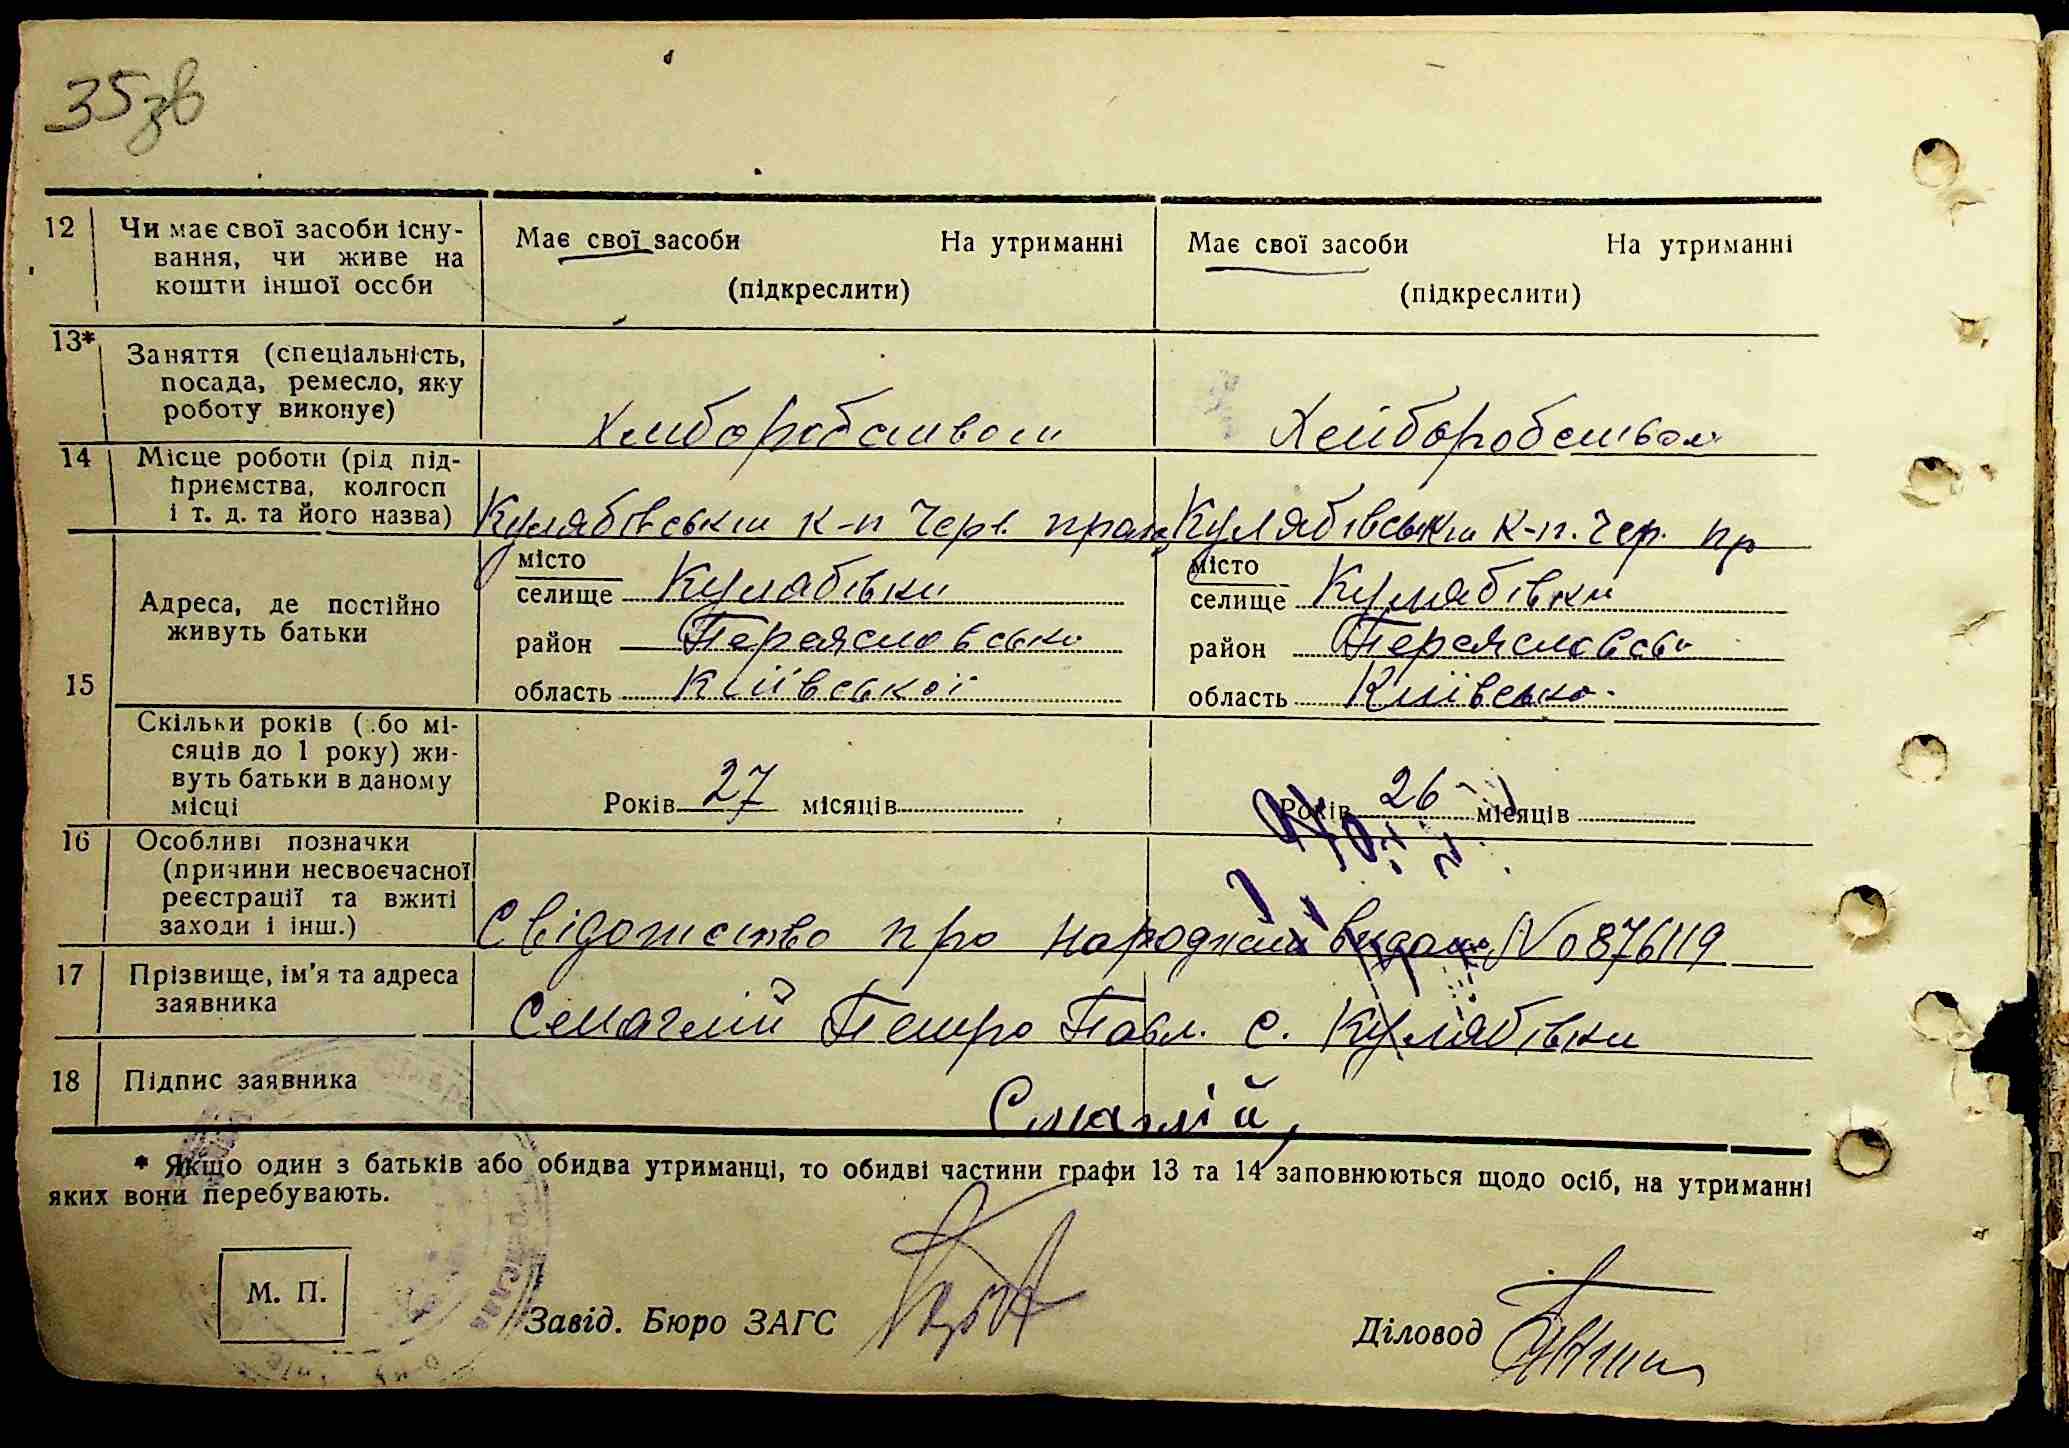 35зв
12 Чи має свої засоби існу-
вання, чи живе на
кошти іншої особи
Має свої засоби На утриманні
(підкреслити)
Має свої засоби На утриманні
(підкреслити)
13* Заняття (спеціальність,
посада, ремесло, яку
роботу виконує)
Хліборобством
Хліборобством
14 Місце роботи (рід під-
приємства, колгосп
і т. д. та його назва)
Кулябівськи к-п Черв. прап
Кулябівськи к-п. Чер. пр
15 Адреса, де постійно
живуть батьки
місто
селище Кулябівки
район Переясловсько
область Київської
місто
селище Кулябівки
район Переясловсь
область Київсько.
Скільки років (бо мі-
сяців до 1 року) жи-
вуть батьки в даному
місці
Років 27 місяців
Років 26 місяців
16 Особливі позначки
(причини несвоєчасної
реєстрації та вжиті
заходи і інш.)
Свідотство про народжен видано №0876119
17 Прізвище, ім'я та адреса
заявника
Смаглій Петро Павл. с. Кулябівки
18 Підпис заявника
Смаглій
* Якщо один з батьків або обидва утриманці, то обидві частини графи 13 та 14 заповнюються щодо осіб, на утриманні
яких вони перебувають.
М. П.
Завід. Бюро ЗАГС
Діловод